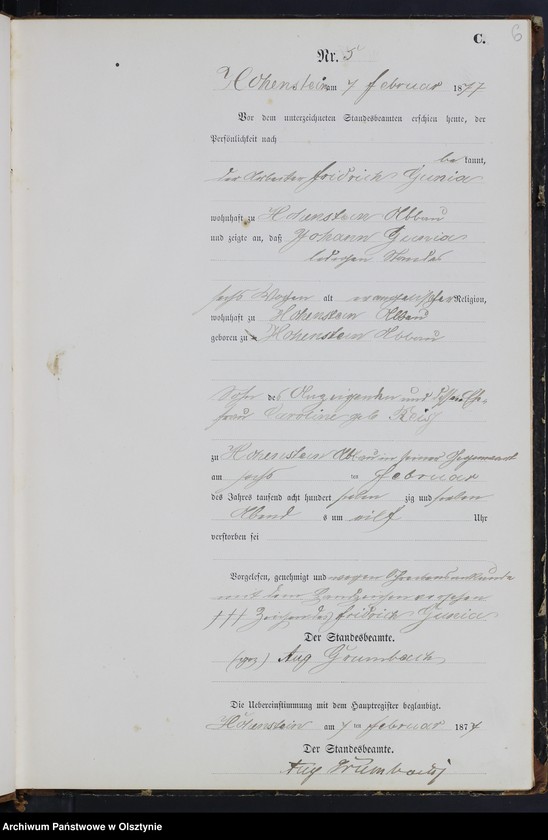 6
C.
Nr. 5
Hohenstein am 7 Februar 1877
Vor dem unterzeichneten Standesbeamten erschien heute, der
Persönlichkeit nach
be kannt,
der Arbeiter Fridrich Gunia
wohnhaft zu Hohenstein Abbau
und zeigte an, daß Johann Gunia
ledigen Standes
sechs Wochen alt evangelischer Religion,
wohnhaft zu Hohenstein Abbau
geboren zu Hohenstein Abbau
Sohn des Anzeigenden und dessen Ehe-
frau Caroline geb
zu Hohenstein Abbau in seiner Gegenwart
am sechs ten Februar
des Jahres tausend acht hundert sieben zig und sieben
Abend s um eilf Uhr
verstorben sei
Vorgelesen, genehmigt und wegen Schreibensunkunde
mit dem Handzeichen versehen
††† Zeichen des Fridrich Gunia
Der Standesbeamte.
(gez) Aug Grumbach
Die Uebereinstimmung mit dem Hauptregister beglaubigt.
Hohenstein am 7 ten Februar 1877
Der Standesbeamte.
Aug Grumbach
Archiwum Państwowe w Olsztynie